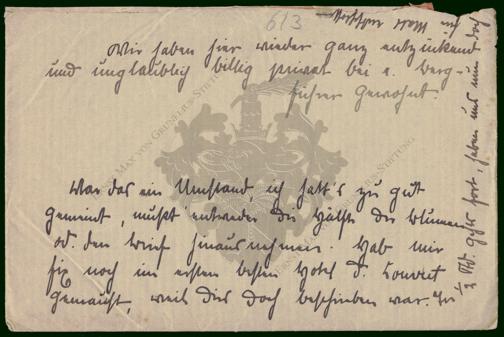 613
Wir haben hier wieder ganz entzückend
und unglaublich billig privat bei e. Berg-
führer gewohnt.
War das ein Umstand, ich hatt's zu gut
gemeint, mußt' entweder die Hälfte der Blumen
od. den Brief hinausnehmen. Hab mir
sie noch im ersten besten Hotel d. Couvert
gemacht, weil dies doch beschrieben war. In
½ Std. geht's fort, haben uns nun doch
MAX VON GRUNELIUS-STIFTUNG